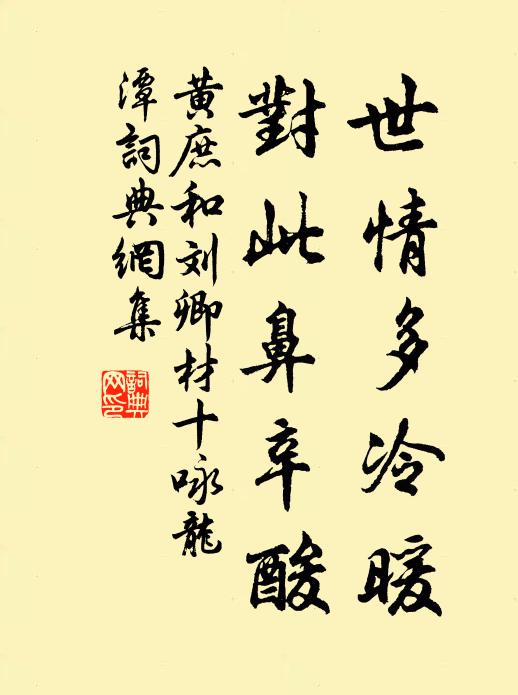 世情多冷暖
對此鼻辛酸
黃庶和刘卿材十咏龍
潭詞典網集
詞典
网印